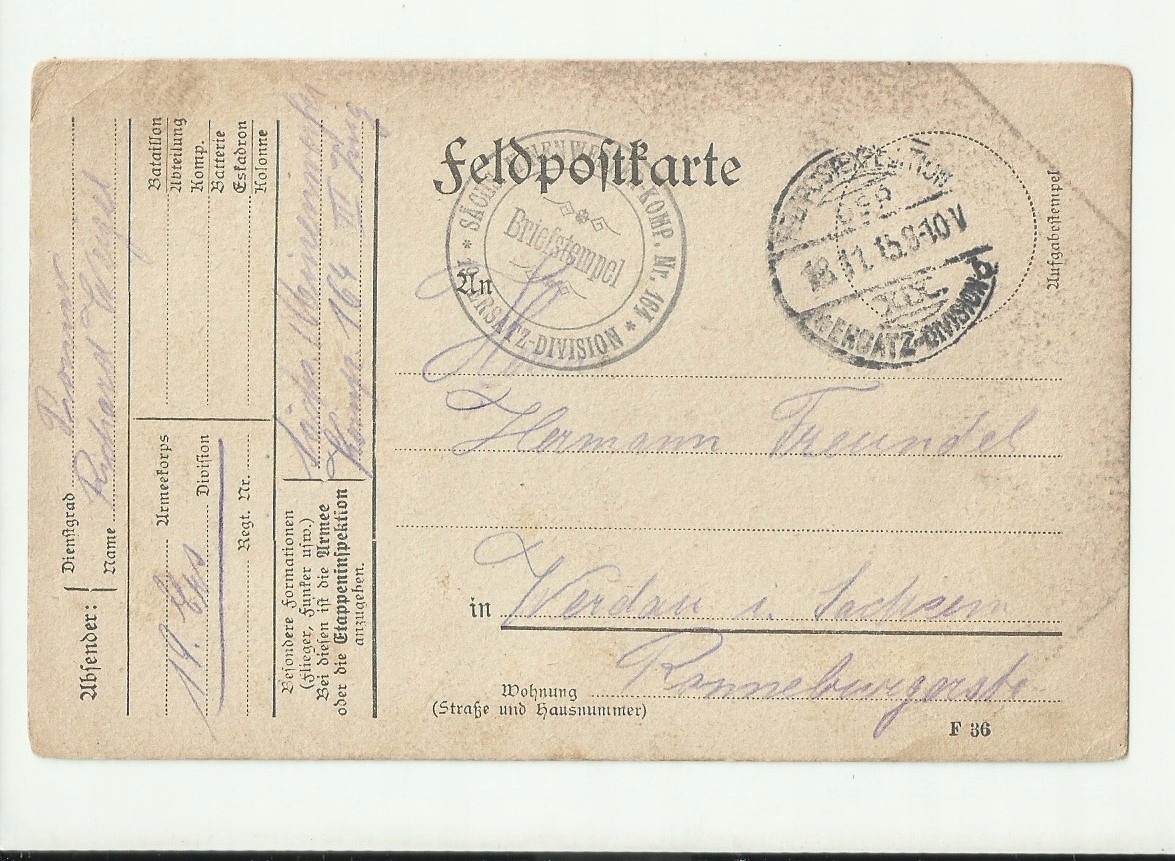 Feldpostkarte
* SÄCHS. MINENWERFER-KOMP. Nr. 164 *
19. ERSATZ-DIVISION
Briefstempel
FELDPOSTEXPEDITION
DER
18.11.15.9-10V
XIX
19. ERSATZ-DIVISION d
Aufgabestempel
An
Hermann Freundel
in Werdau i. Sachsen
Wohnung Ronneburgerstr.
(Straße und Hausnummer)
F 36
Absender:
Dienstgrad Pionier
Name Richard
Bataillon
Abteilung
Komp.
Batterie
Eskadron
Kolonne
Armeekorps
19. Ers Division
Regt. Nr.
Besondere Formationen
(Flieger, Funker usw.)
Bei diesen ist die Armee
oder die Etappeninspektion
anzugeben.
Sächs. Minenwerfer
Komp. 164 III Zug